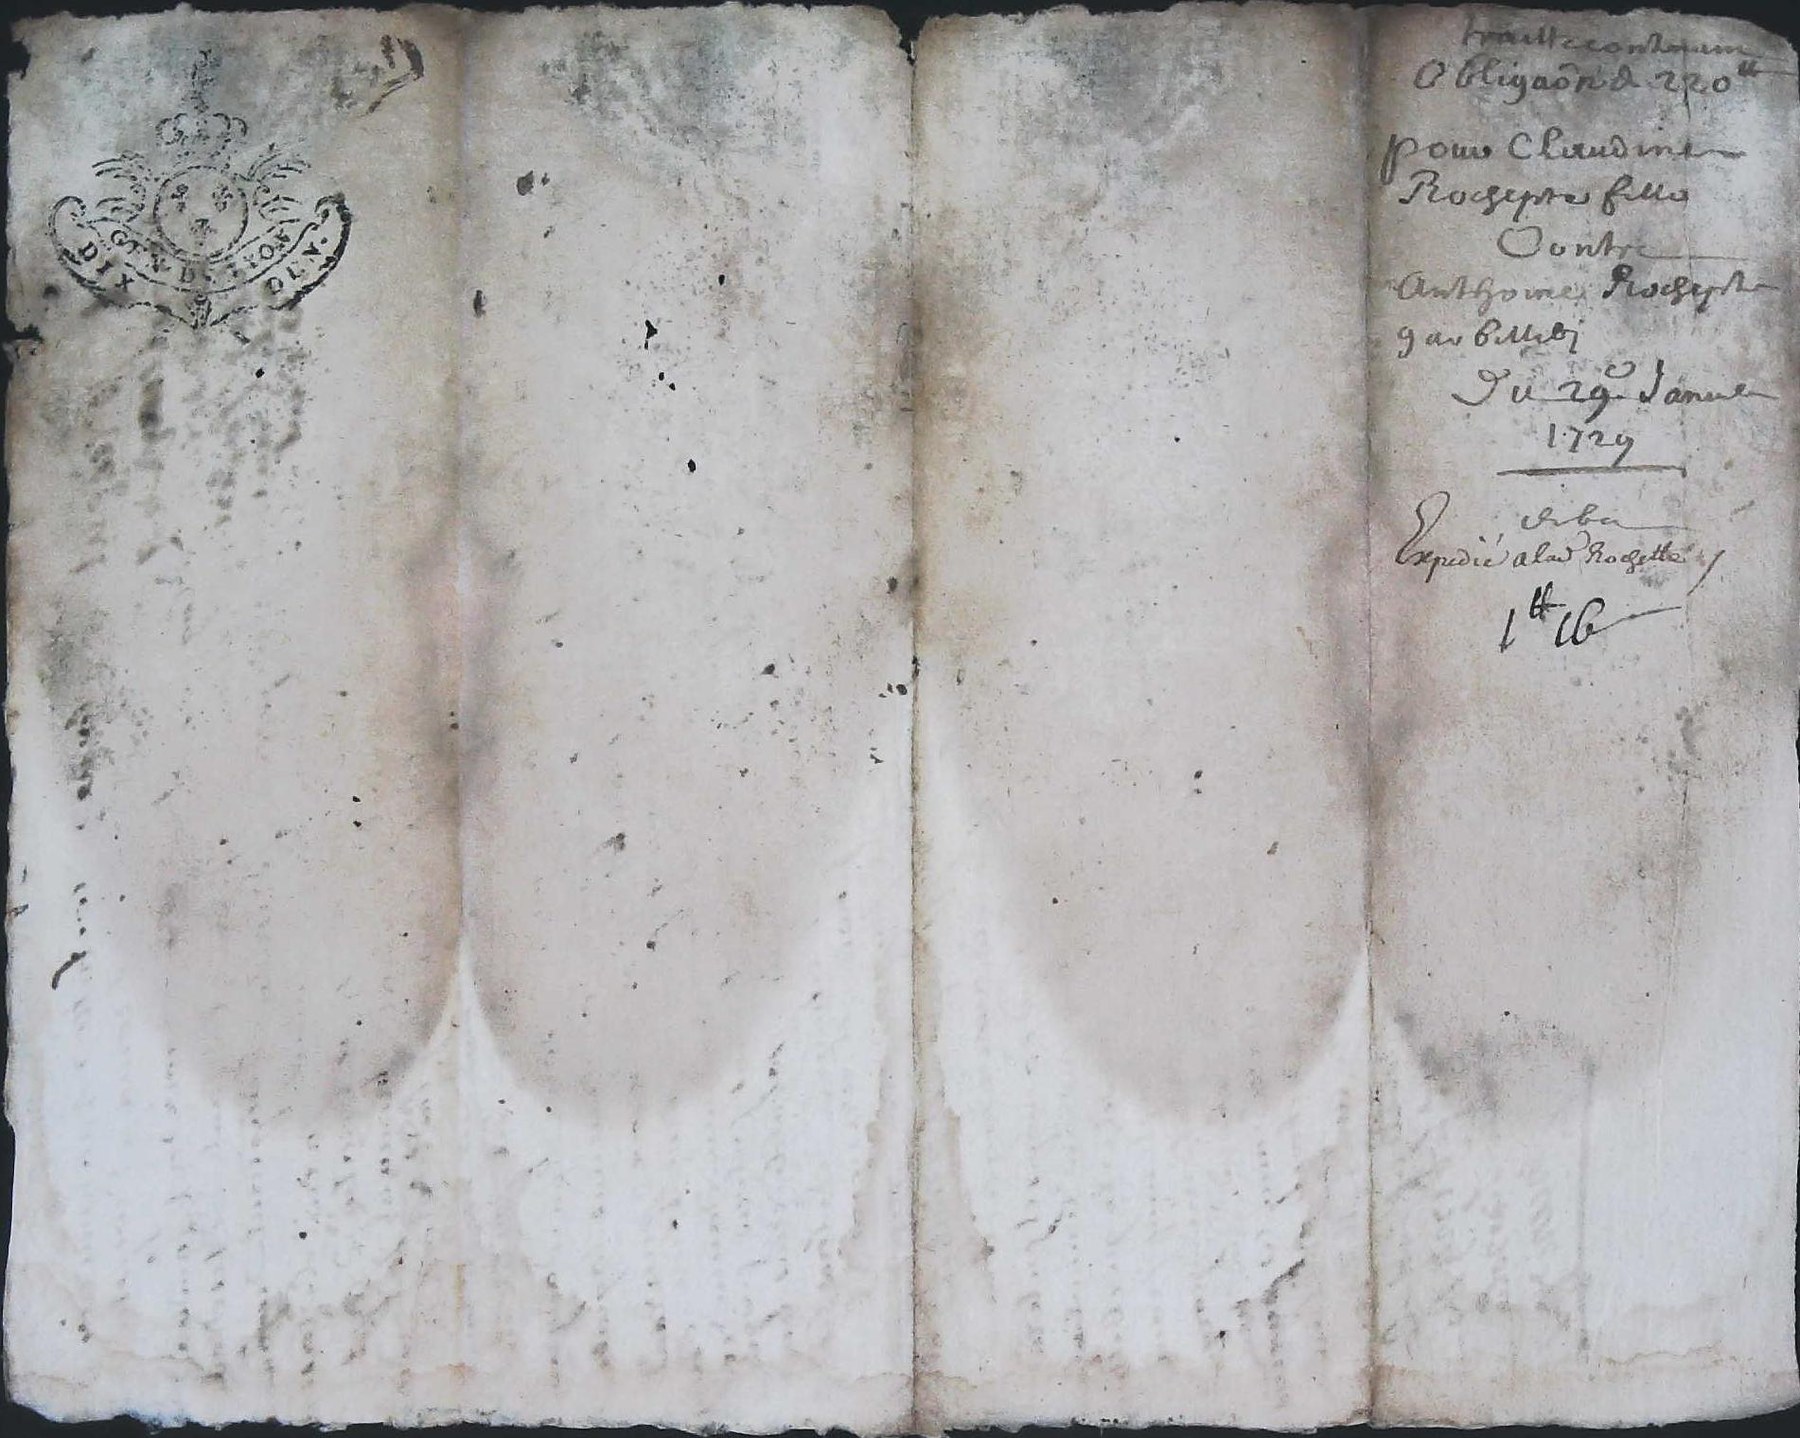 GEN D LYON
DIX
traitte contenant
Obligaõn de 220ᵗᵗ
pour Claudine
Rochepte fille
Contre
Anthoine Rochepte
Du 29ᵉ Janvier
1729
Expedié a lad Rochette
1ᵗᵗ 16